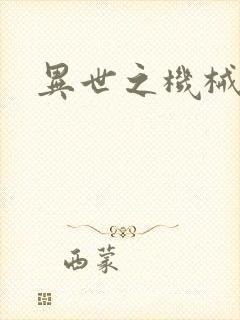 異世之機械
西蒙